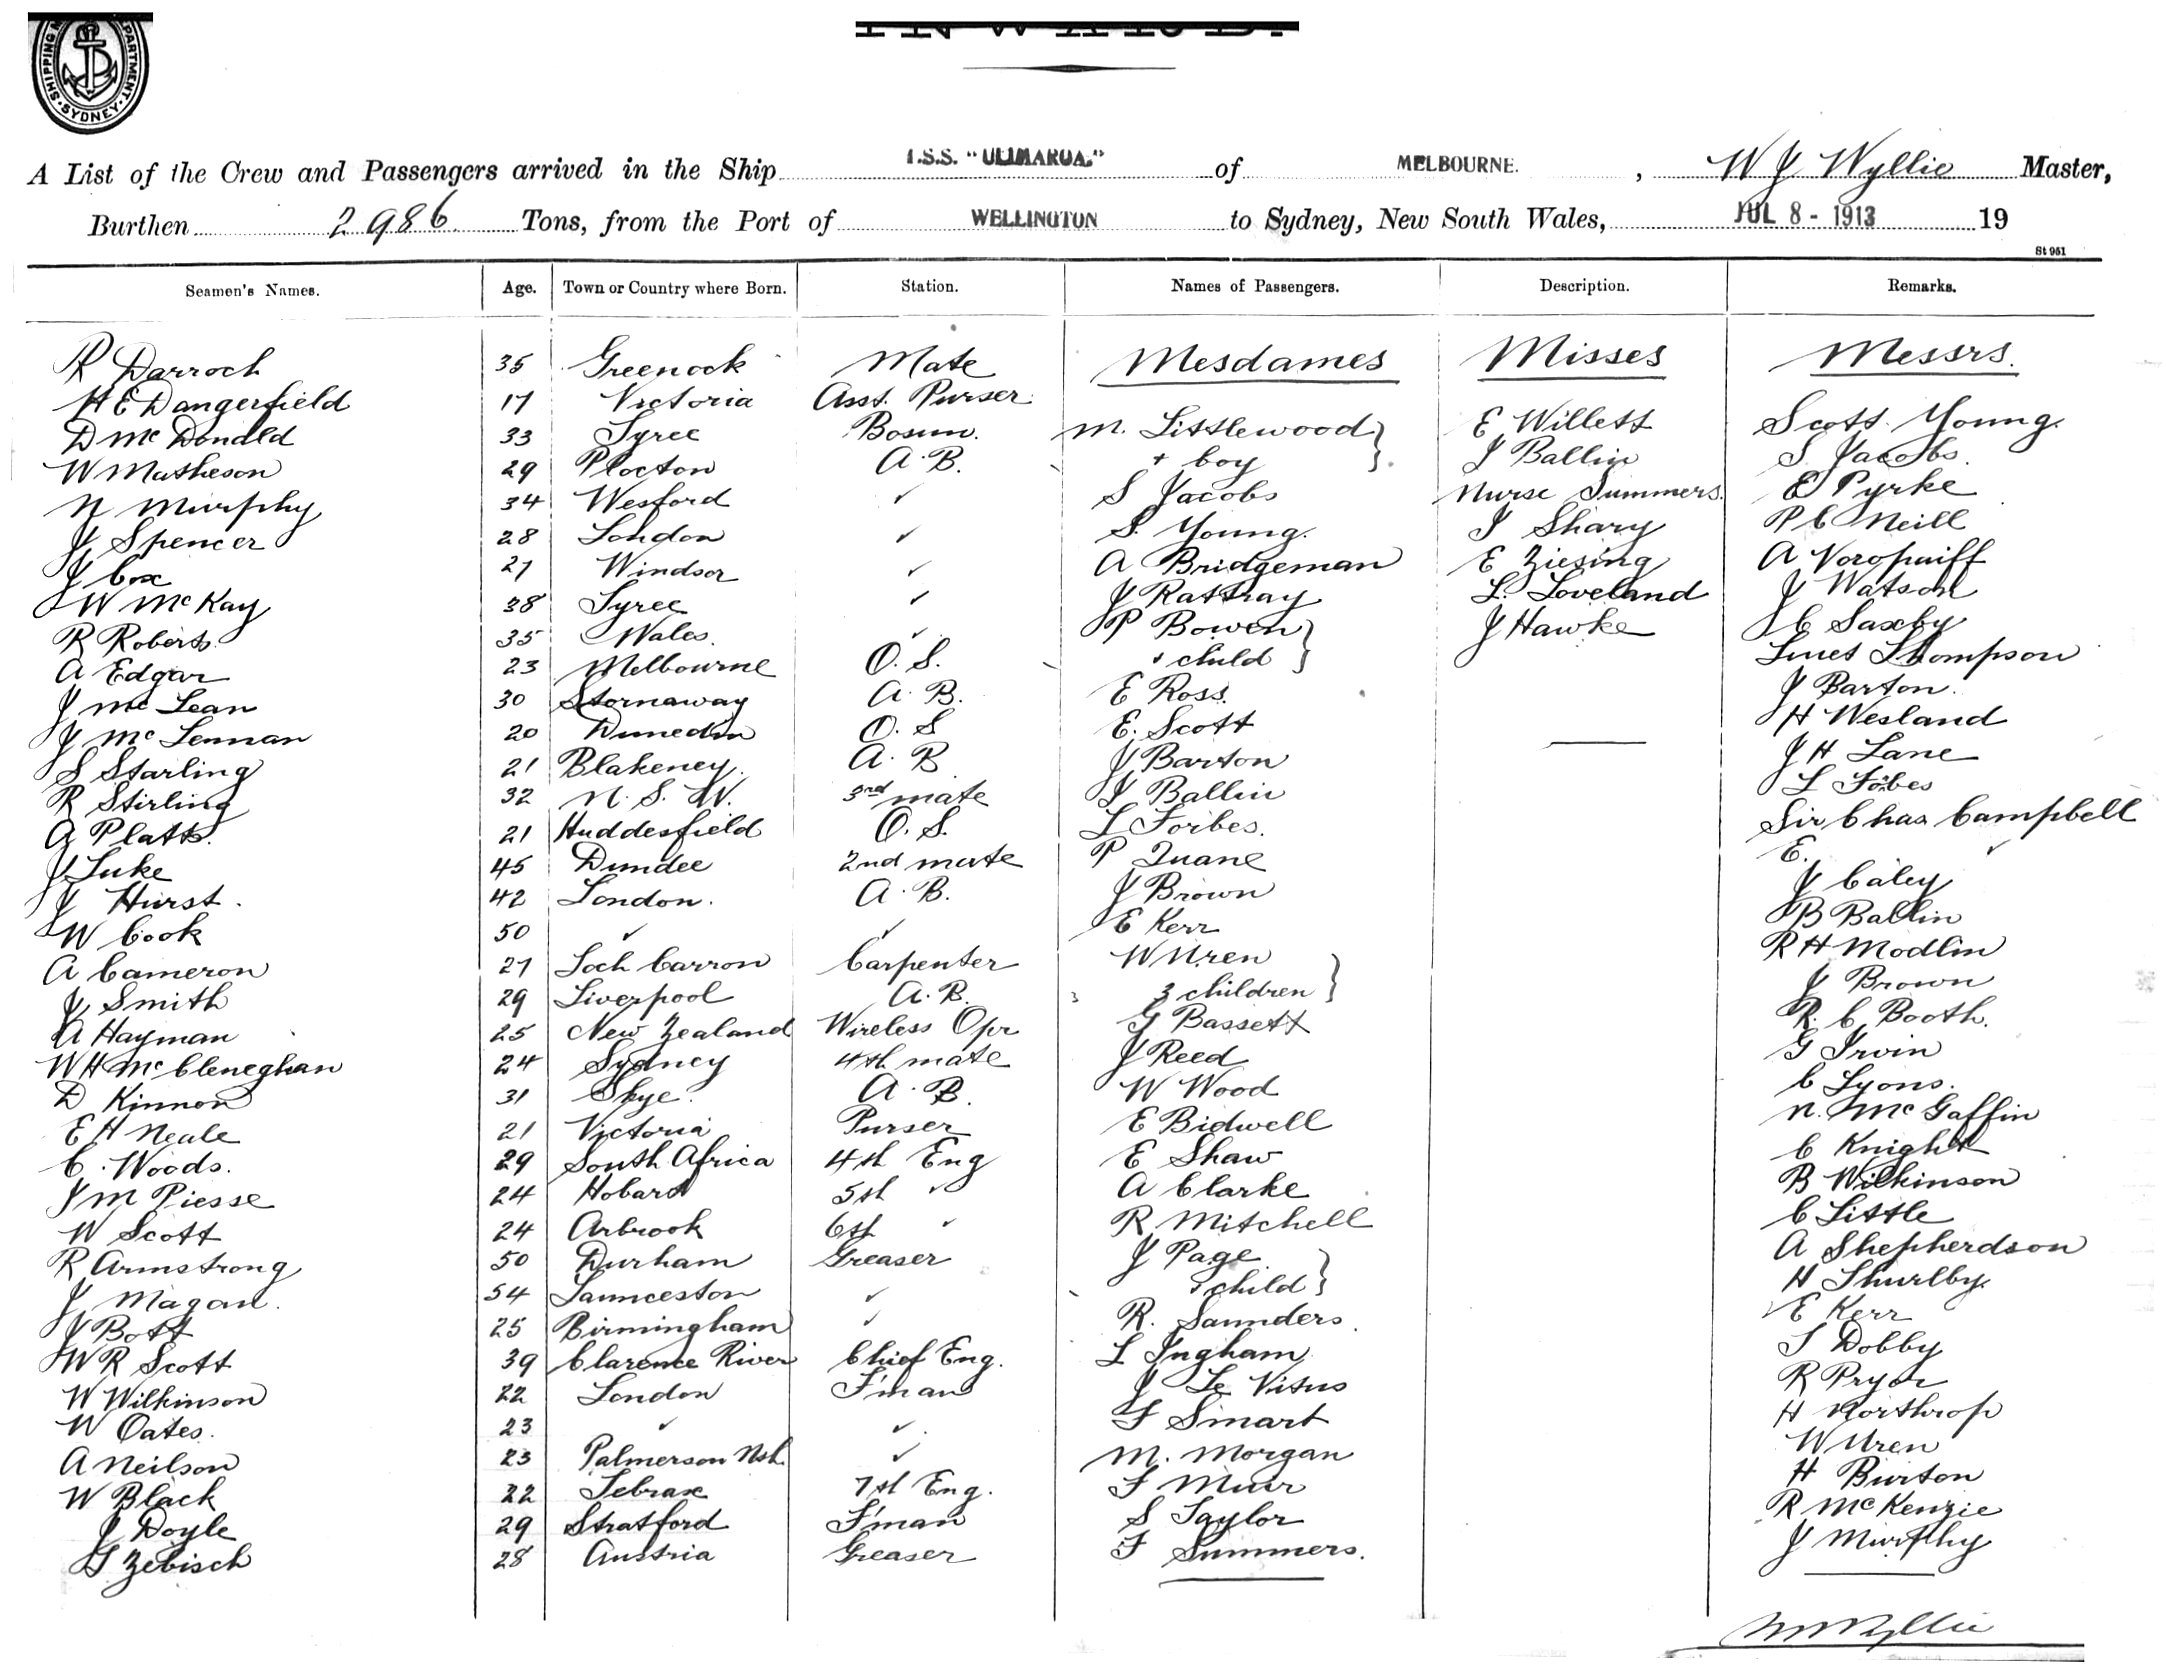 SHIPPING DEPARTMENT. SYDNEY
INWARD.
A List of the Crew and Passengers arrived in the Ship T.S.S. "ULIMAROA." of MELBOURNE. , W J Wyllie Master,
Burthen 2986 Tons, from the Port of WELLINGTON to Sydney, New South Wales, JUL 8 - 1913 19
St 951
Seamen's Names. Age. Town or Country where Born. Station. Names of Passengers. Description. Remarks.
Mesdames Misses Messrs.
R Darroch 35 Greenock Mate
H E Dangerfield 17 Victoria Asst. Purser
D McDonald 33 Tyree Bosun. M. Littlewood } E Willett Scott Young.
W Matheson 29 Plocton A. B. + boy J Ballin S Jacobs
N Murphy 34 Wexford ✓ S Jacobs Nurse Summers. E Pyrke
J Spencer 28 London ✓ S. Young. I Shary P C Neill
J Cox 27 Windsor ✓ A Bridgeman E Ziesing A Voropaiff
W McKay 38 Tyree ✓ J Rattray L. Loveland J Watson
R Roberts 35 Wales. ✓ P Bowen } J Hawke C Saxby
A Edgar 23 Melbourne O. S. + child Thompson
J McLean 30 Stornaway A. B. E Ross. J Barton.
J McLennan 20 Dunedin O. S E. Scott H Wesland
S Starling 21 Blakeney. A. B J Barton J H Lane
R Stirling 32 N. S. W. 3rd mate J Ballin L Fobes
A Platts. 21 Huddesfield O. S. L Forbes. Sir Chas Campbell
J Luke 45 Dundee 2nd mate P Duane E. ✓
J Hurst. 42 London. A. B. J Brown J Caley
W Cook 50 ✓ ✓ E Kerr B Ballin
A Cameron 27 Loch Carron Carpenter W Uren } R H Modlin
J Smith 29 Liverpool A. B. 3 children J Brown
A Hayman 25 New Zealand Wireless Opr G Bassett R. C Booth.
W H McCleneghan 24 Sydney 4th mate J Reed G Irvin
D Kinnon 31 Skye. A. B. W Wood C Lyons.
E H Neale 21 Victoria Purser E Bidwell N. McGaffin
C. Woods. 29 South Africa 4th Eng E Shaw C Knight
J M Piesse 24 Hobart 5th ✓ A Clarke B Wilkinson
W Scott 24 Arbrook 6th ✓ R Mitchell C Little
R Armstrong 50 Durham Greaser J Page } A Shepherdson
J Magan. 54 Launceston ✓ + child H Thurlby.
J Bott 25 Birmingham ✓ R. Saunders. E Kerr
W R Scott 39 Clarence River Chief Eng. L Ingham T Dobby
W Wilkinson 22 London F'man J Le Vitus R Pryor
W Oates. 23 ✓ ✓ F Smart H Northrop
A Neilson 23 Palmerson Nth. ✓ M. Morgan W Uren
W Black 22 Tebrax 7th Eng. F Muir H Burton
J Doyle 29 Stratford F'man S Taylor R McKenzie
G Zebisch 28 Austria Greaser F Summers. J Murphy
W J Wyllie